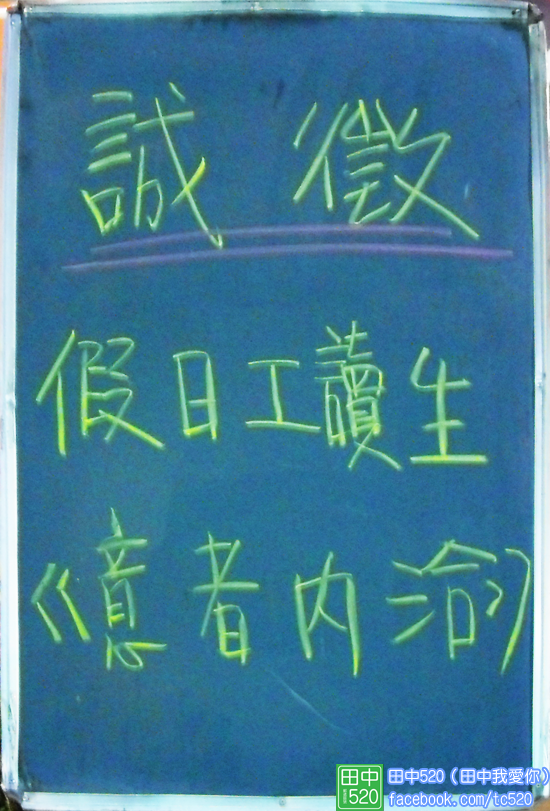 誠徵
假日工讀生
《意者內洽》
田中520
田中520（田中我愛你）
facebook.com/tc520